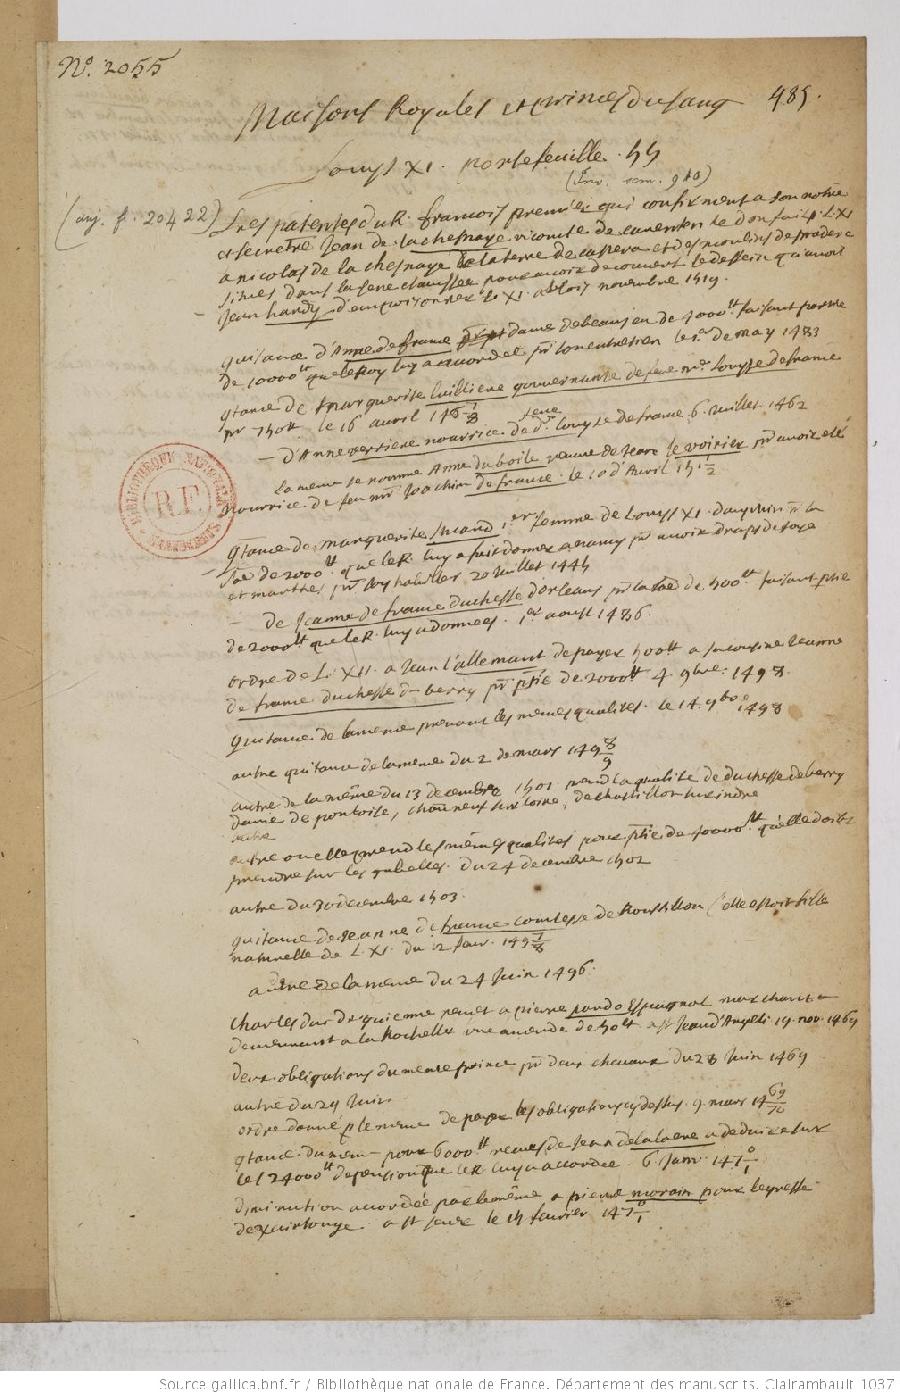 N°. 2055
Maisons Royales et princes du sang 485.
Louys XI. portefeuille. 55
(Inv. som. 910)
(auj. f. 20422) Lres patentes du R. francois premier qui confirment a son notre
et secretre Jean de la chesnaye vicomte de le don fait p L. XI
a nicolas de la chesnaye de la terre de et des moulins de
sittues dans la pour avoir decouvert le dessein qu'avoit
Jean hardy d'empoisonner L. XI. a blois novembre 1519.
quitance d'Anne de france dame de beaujeu de 5000tt. faisant partie
de 10000tt que le Roy luy a accordez pr son entretien le 1er de may 1483
qtance de Marguerite luilliere gouvernante de feue me. Louyse de france
pr le 16 avril 146 7/8
– d'Anne versiene nourrice de de. feue Louyse de france 6. Juillet 1462
La meme se nomme Anne du boile veuve de le voirier pr avoir esté
nourrice de feu mr Joachim de france. le 10 d'Avril 15 1/2
– qtance de marguerite 1ere femme de Louys XI. dauphin pr la
sõe de 2000tt. que le R. luy a fait donner a nancy pr avoir draps de soye
et marthes pr 20 Juillet 1445
– de Jeanne de france duchesse d'orleans pr la sõe de 500tt faisant ptie
de 2000tt que le R. luy a donnees. 1er aoust 1486.
ordre de L. XII. a Jean l'allemant de payer 500tt a sa cousine Jeanne
de france duchesse de berry pr ptie de 2000tt 4. 9bre. 1498.
quitance de la meme prenant les memes qualites. le 14 9bre 1498
autre quitance de la meme du 2 de mars 149 8/9
autre de la même du 13 decembre 1501 prend la qualité de duchesse de berry
dame de pontoise, chãuneuf sur loire, de chastillon sur indre
autre ou elle prend les mêmes qualites pour ptie de 50000tt. qu'elle doibt
prendre sur les gabelles. du 24 decembre 1502
autre du 30 decembre 1503.
quitance de Jeanne de france comtesse de Roussillon (elle estoit fille
naturelle de L. XI. du 12 Janr. 149 7/8
autre de la meme du 24 Juin 1496.
Charles duc de guienne remet a pierre pardo Espagnol marchant
demeurant a la Rochelle une amende de 50tt a St Jean d'Angeli 19. nov. 1469
deux obligations du meme prince pr deux chevaux du 28 Juin 1469
autre du 29 Juin
ordre donné p le meme de payer les obligations cy dessus. 9. mars 14 69/70
qtance du mem pour 6000tt receues de Jean de la a deduire sur
les 24000tt de pension que le R. luy a accordee. 6. Janv. 147 0/1
diminution accordée par le même a pierre morain pour
de Xaintonge. a st le 15 fevrier 147 0/1
BIBLIOTHEQUE NATIONALE
R.F.
MANUSCRITS
Source gallica.bnf.fr / Bibliothèque nationale de France. Département des manuscrits. Clairambault 1037